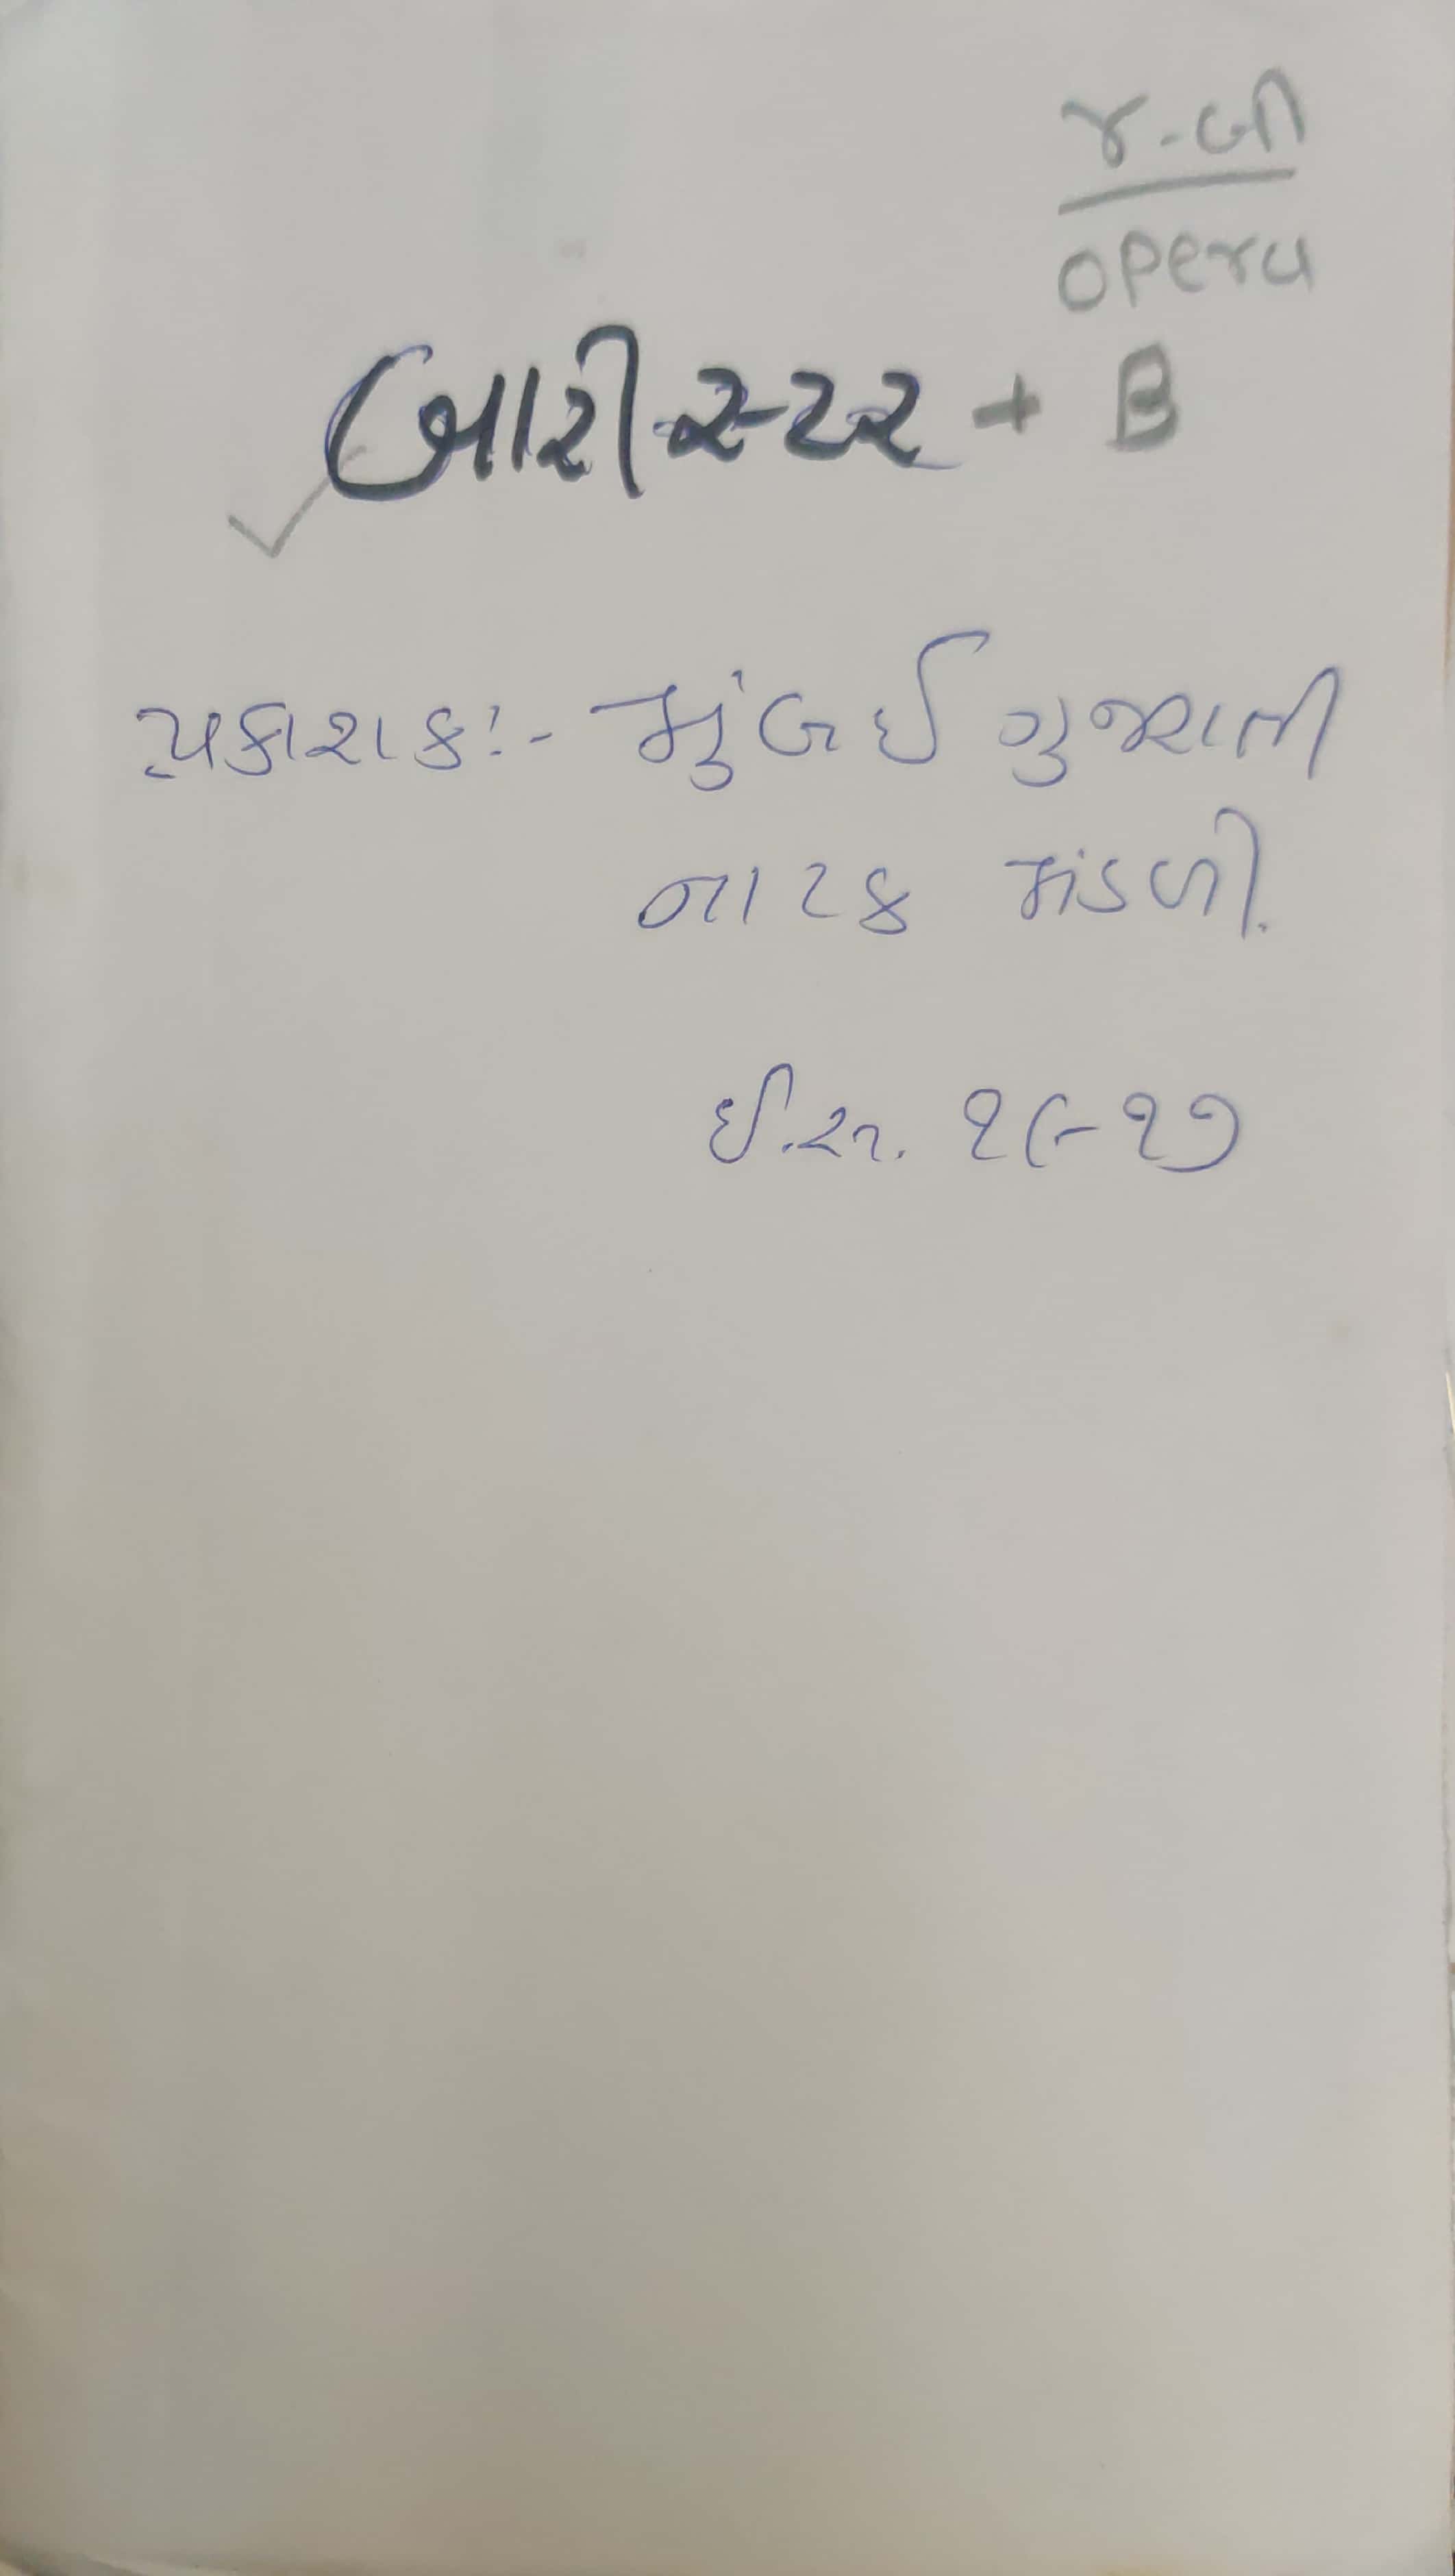 ૪-બી
opera
બારીસ્ટર + B
પ્રકાશક:- મુંબઈ ગુજરાતી
નાટક મંડળી.
ઈ.સ. ૧૯૧૭